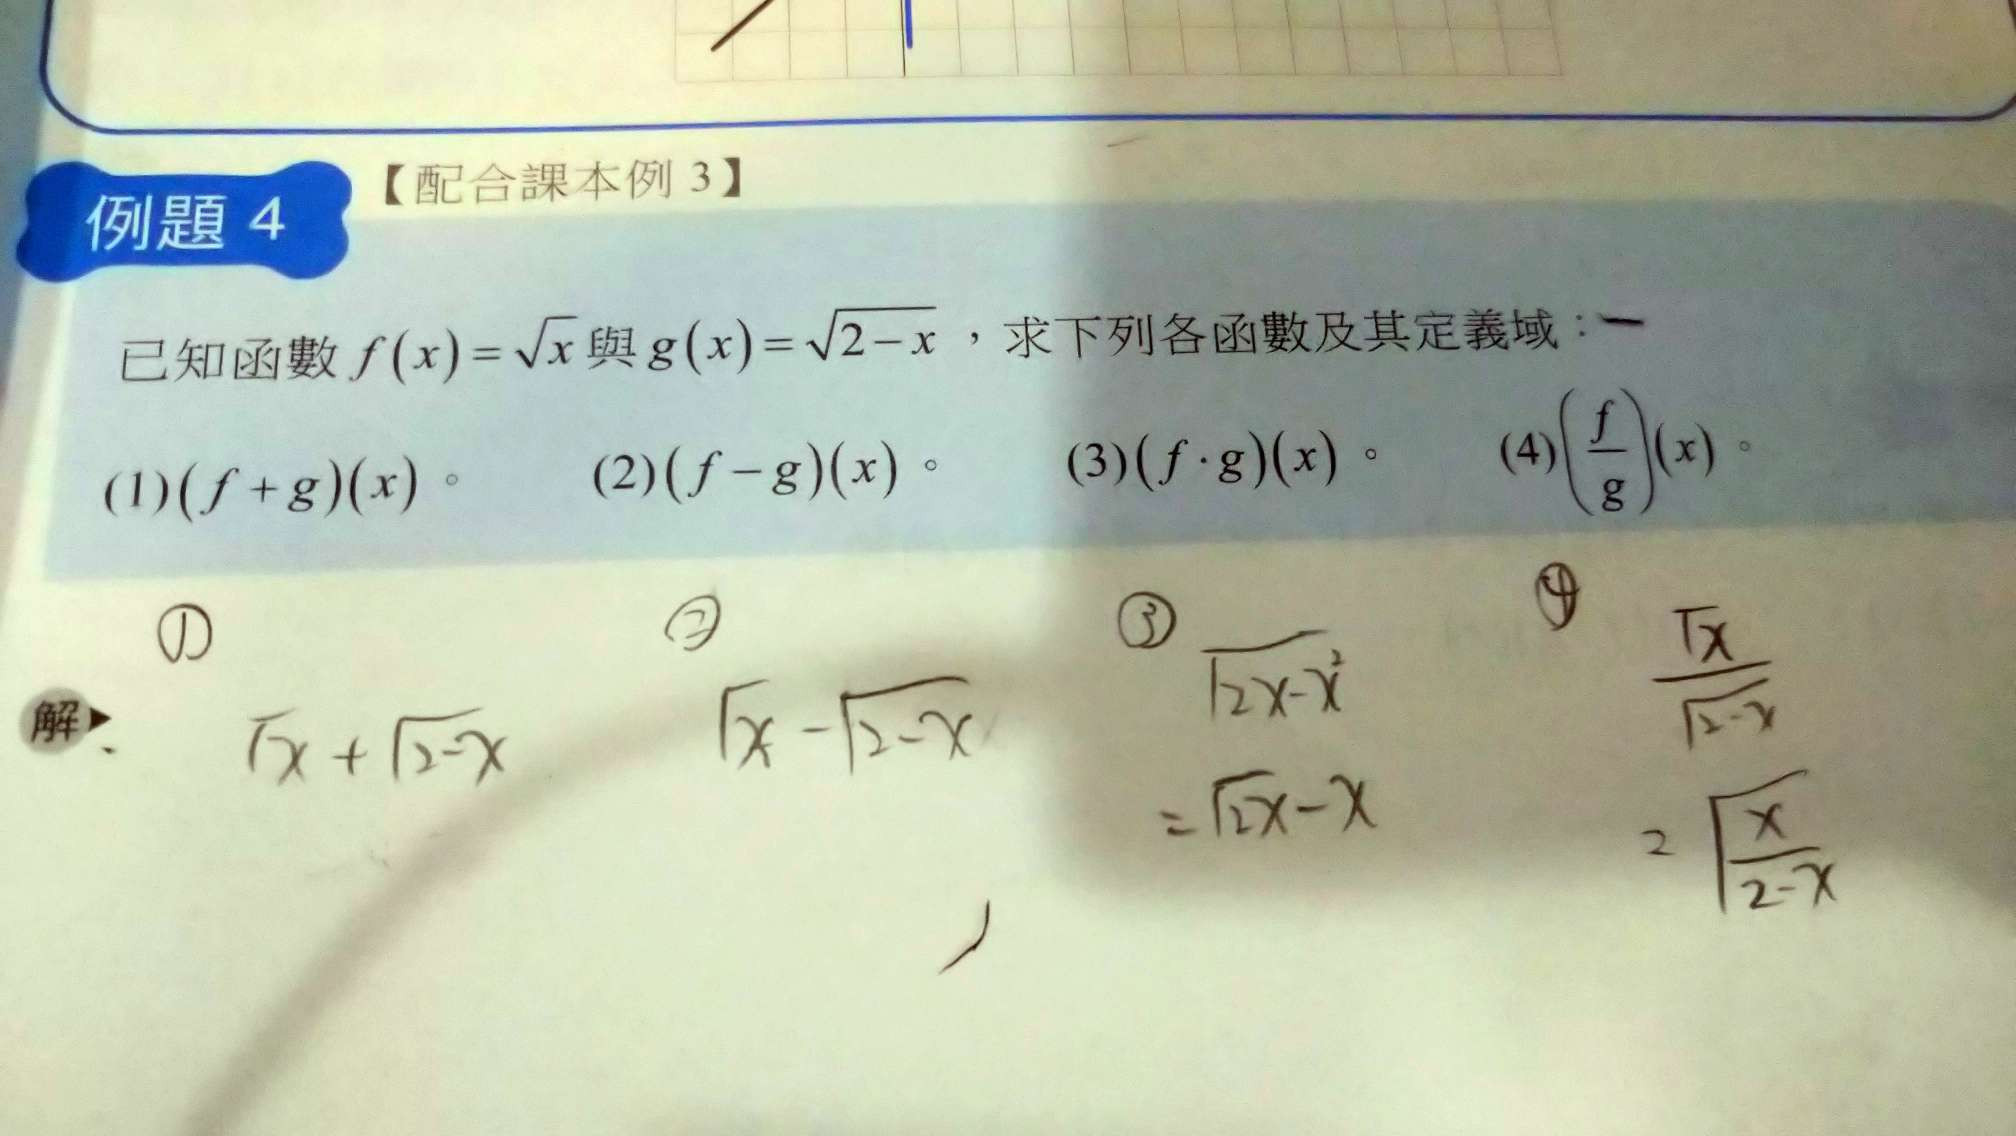 例題 4 【配合課本例 3】
已知函數 f(x)=√x 與 g(x)=√(2−x)，求下列各函數及其定義域：
(1)(f+g)(x)。 (2)(f−g)(x)。 (3)(f·g)(x)。 (4)(f/g)(x)。
① ② ③ ④
解▶ √x + √(2-x) √x - √(2-x) √(2x-x²) √x/√(2-x)
= √2x - x = √(x/(2-x))